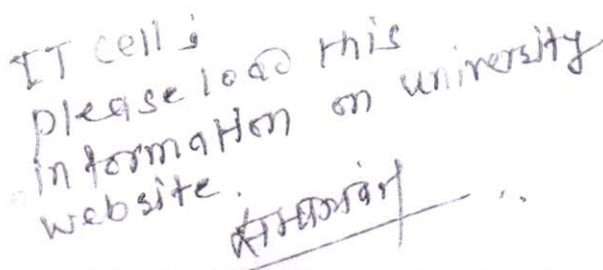 IT cell :
please load this
information on university
website.